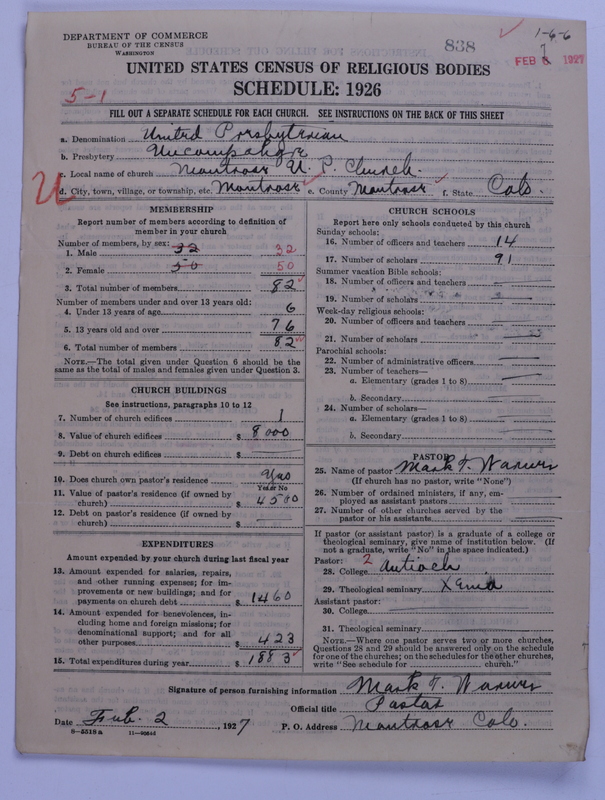 DEPARTMENT OF COMMERCE
BUREAU OF THE CENSUS
WASHINGTON
838
1-6-6
7
FEB 8 1927
UNITED STATES CENSUS OF RELIGIOUS BODIES
SCHEDULE: 1926
5-1
FILL OUT A SEPARATE SCHEDULE FOR EACH CHURCH. SEE INSTRUCTIONS ON THE BACK OF THIS SHEET
a. Denomination United Presbyterian
b. Presbytery Uncompahgre
c. Local name of church Montrose U. P. Church.
U
d. City, town, village, or township, etc. Montrose e. County Montrose f. State Colo.
MEMBERSHIP
Report number of members according to definition of
member in your church
Number of members, by sex:
1. Male 32 32
2. Female 50 50
3. Total number of members 82
Number of members under and over 13 years old:
4. Under 13 years of age 6
5. 13 years old and over 76
6. Total number of members 82
NOTE.—The total given under Question 6 should be
same as the total of males and females given under Question 3.
CHURCH BUILDINGS
See instructions, paragraphs 10 to 12
7. Number of church edifices 1
8. Value of church edifices $ 8000
9. Debt on church edifices $
10. Does church own pastor's residence Yes
Yes or No
11. Value of pastor's residence (if owned by
church) $ 4500
12. Debt on pastor's residence (if owned by
church) $
EXPENDITURES
Amount expended by your church during last fiscal year
13. Amount expended for salaries, repairs,
and other running expenses; for im-
provements or new buildings; and for
payments on church debt $ 1460
14. Amount expended for benevolences, in-
cluding home and foreign missions; for
denominational support; and for all
other purposes $ 423
15. Total expenditures during year $ 1883
CHURCH SCHOOLS
Report here only schools conducted by this church
Sunday schools:
16. Number of officers and teachers 14
17. Number of scholars 91
Summer vacation Bible schools:
18. Number of officers and teachers
19. Number of scholars
Week-day religious schools:
20. Number of officers and teachers
21. Number of scholars
Parochial schools:
22. Number of administrative officers
23. Number of teachers—
a. Elementary (grades 1 to 8)
b. Secondary
24. Number of scholars—
a. Elementary (grades 1 to 8)
b. Secondary
PASTOR
25. Name of pastor Mark T. Warner
(If church has no pastor, write "None")
26. Number of ordained ministers, if any, em-
ployed as assistant pastors
27. Number of other churches served by the
pastor or his assistants
If pastor (or assistant pastor) is a graduate of a college or
theological seminary, give name of institution below. (If
not a graduate, write "No" in the space indicated.)
Pastor: 2
28. College Antioch
29. Theological seminary Xenia
Assistant pastor:
30. College
31. Theological seminary
NOTE.—Where one pastor serves two or more churches,
Questions 28 and 29 should be answered only on the schedule
for one of the churches; on the schedules for the other churches,
write "See schedule for church."
Signature of person furnishing information Mark T. Warner
Official title Pastor
Date Feb. 2, 1927 P. O. Address Montrose Colo.
8-5518a